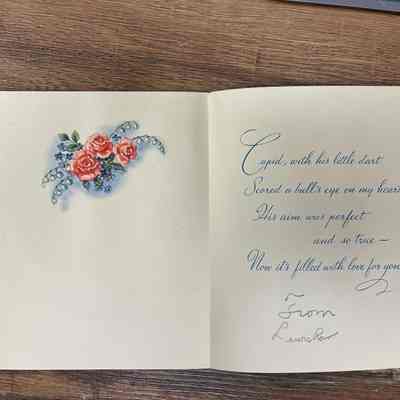 Cupid, with his little dart
Scored a bull's eye on my heart
His aim was perfect
and so true —
Now it's filled with love for you
From